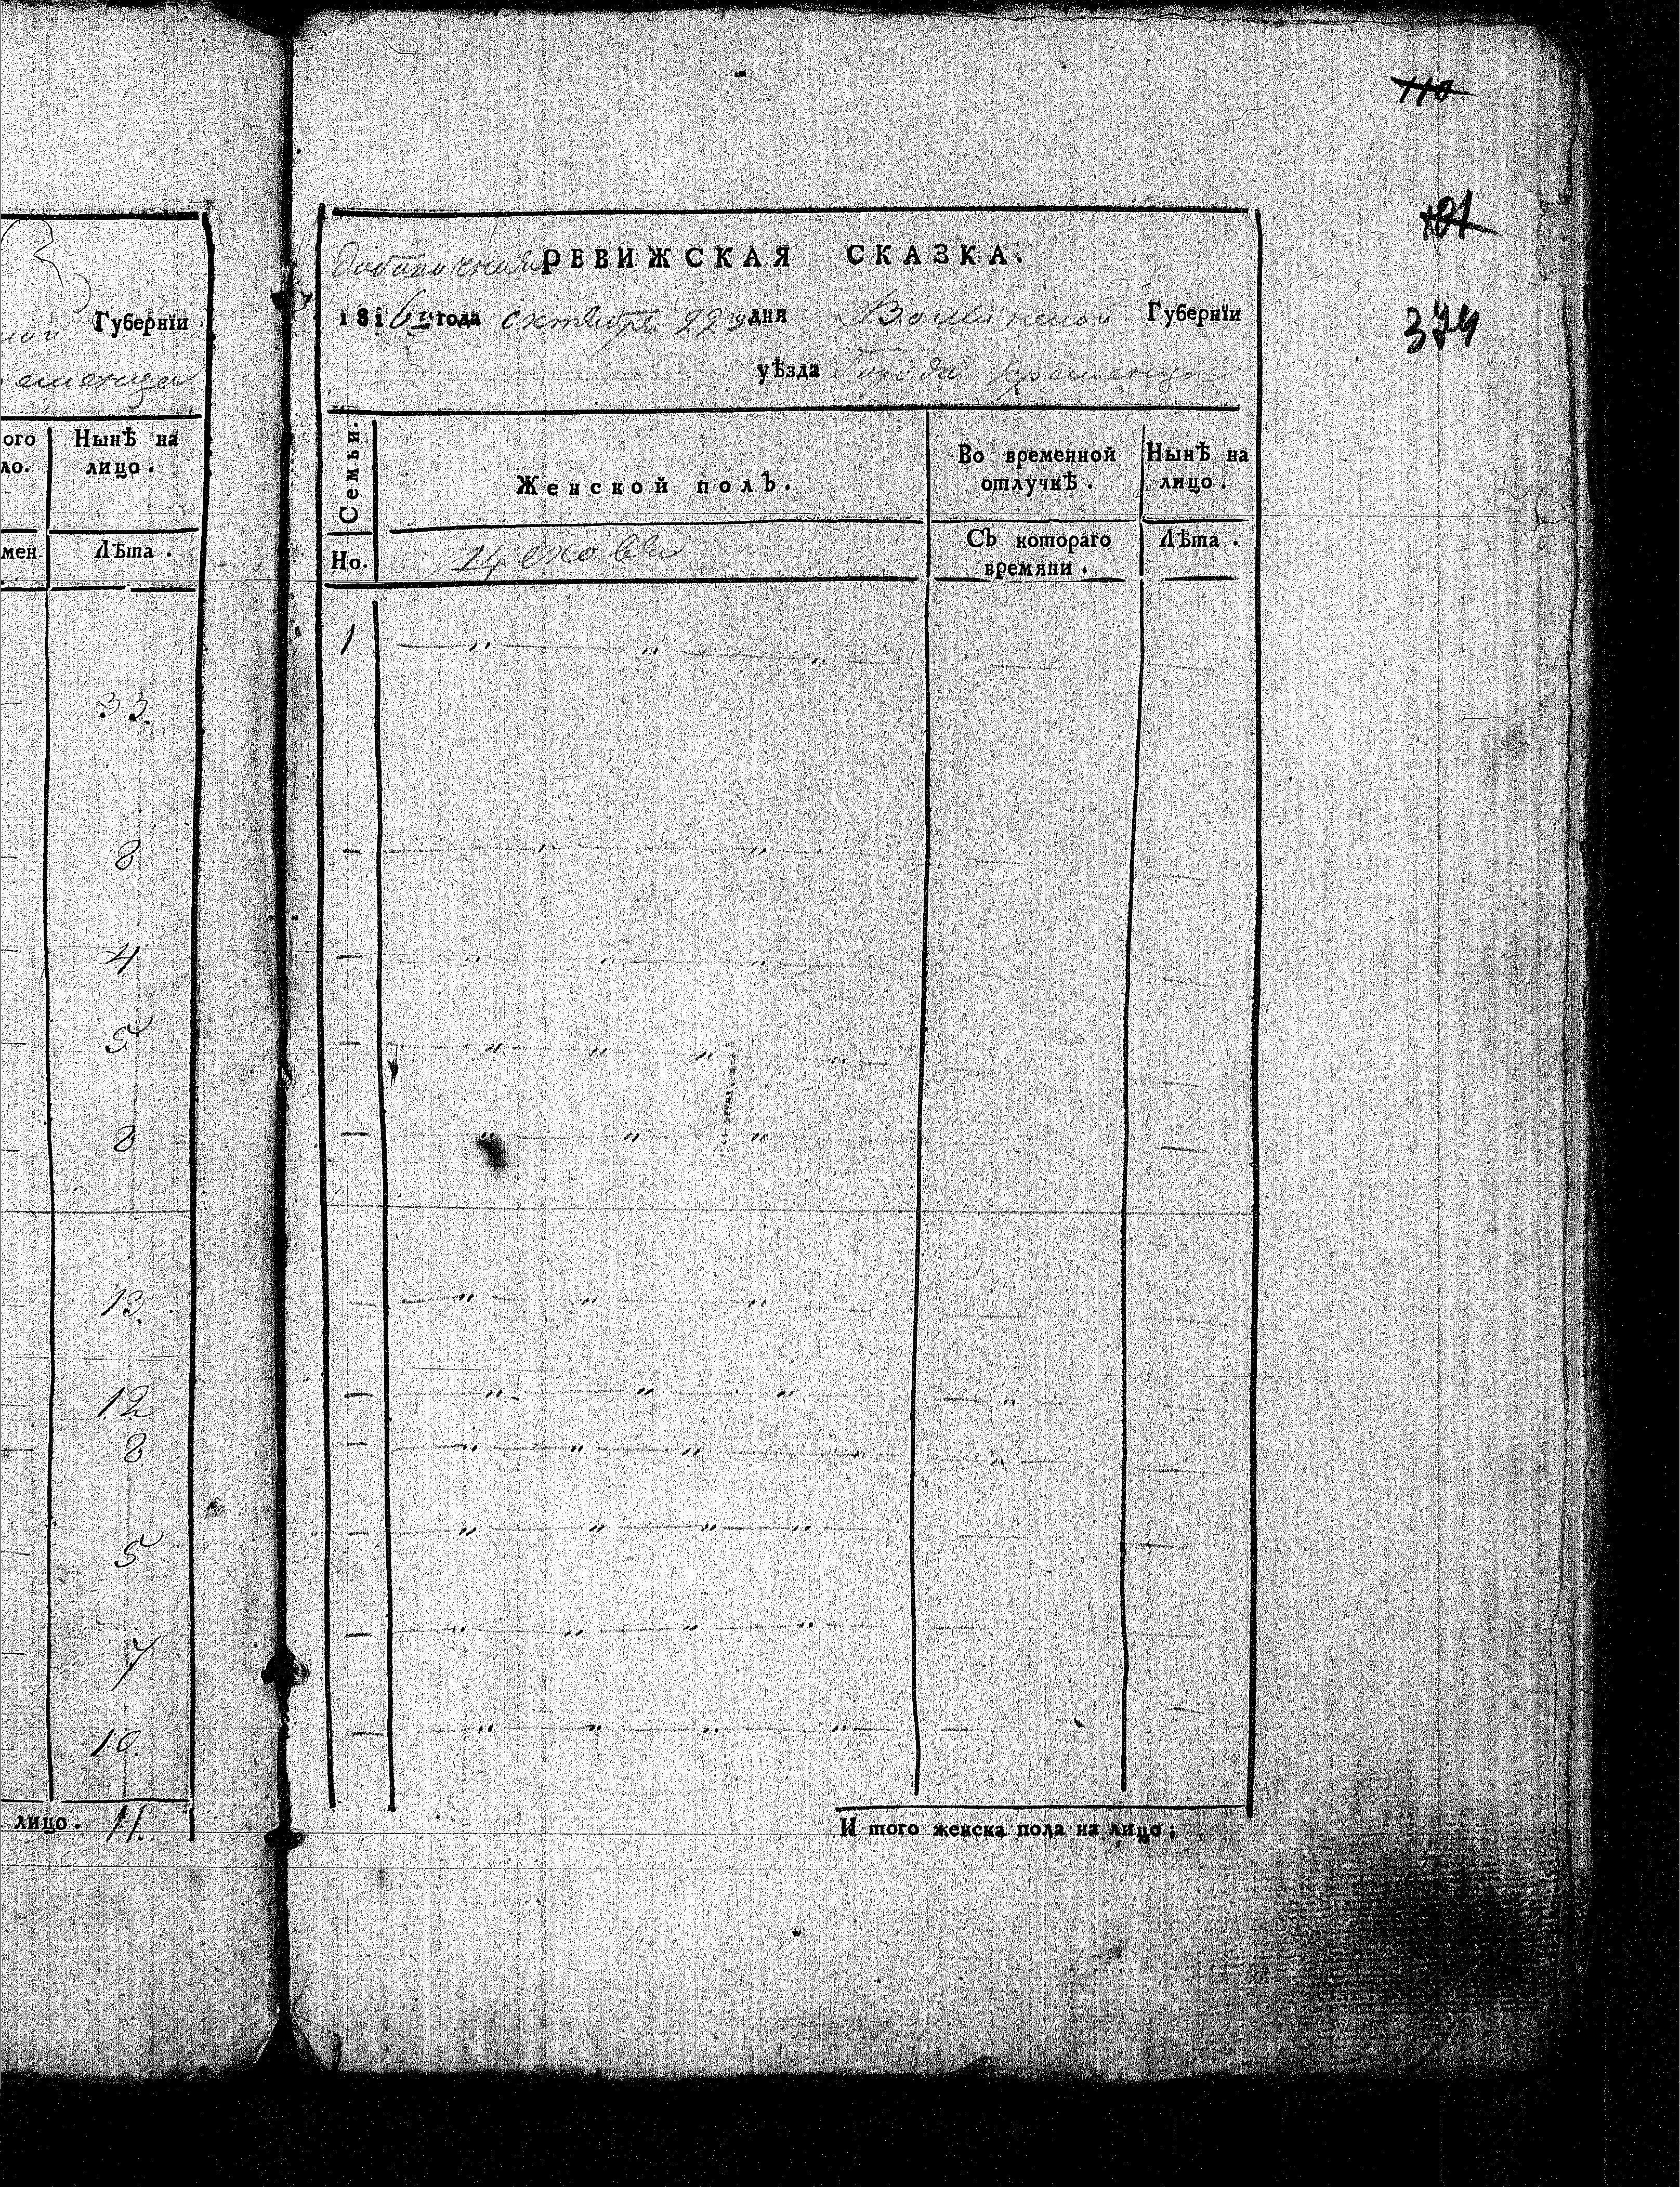 110
101
374
Губернїи
еменца
ого
ло.
Нынѣ на
лицо.
мен.
Лѣта.
33.
8
4
5
8
13.
12
8
5
7
10.
лицо. 11.
РЕВИЖСКАЯ СКАЗКА.
1816го года октября 22го дня Волынской Губернїи
уѣзда города кременца
Семьи.
Женской полъ.
Во временной
отлучкѣ.
Нынѣ на
лицо.
Но.
Съ котораго
времяни.
Лѣта.
1
И того женска пола на лицо;